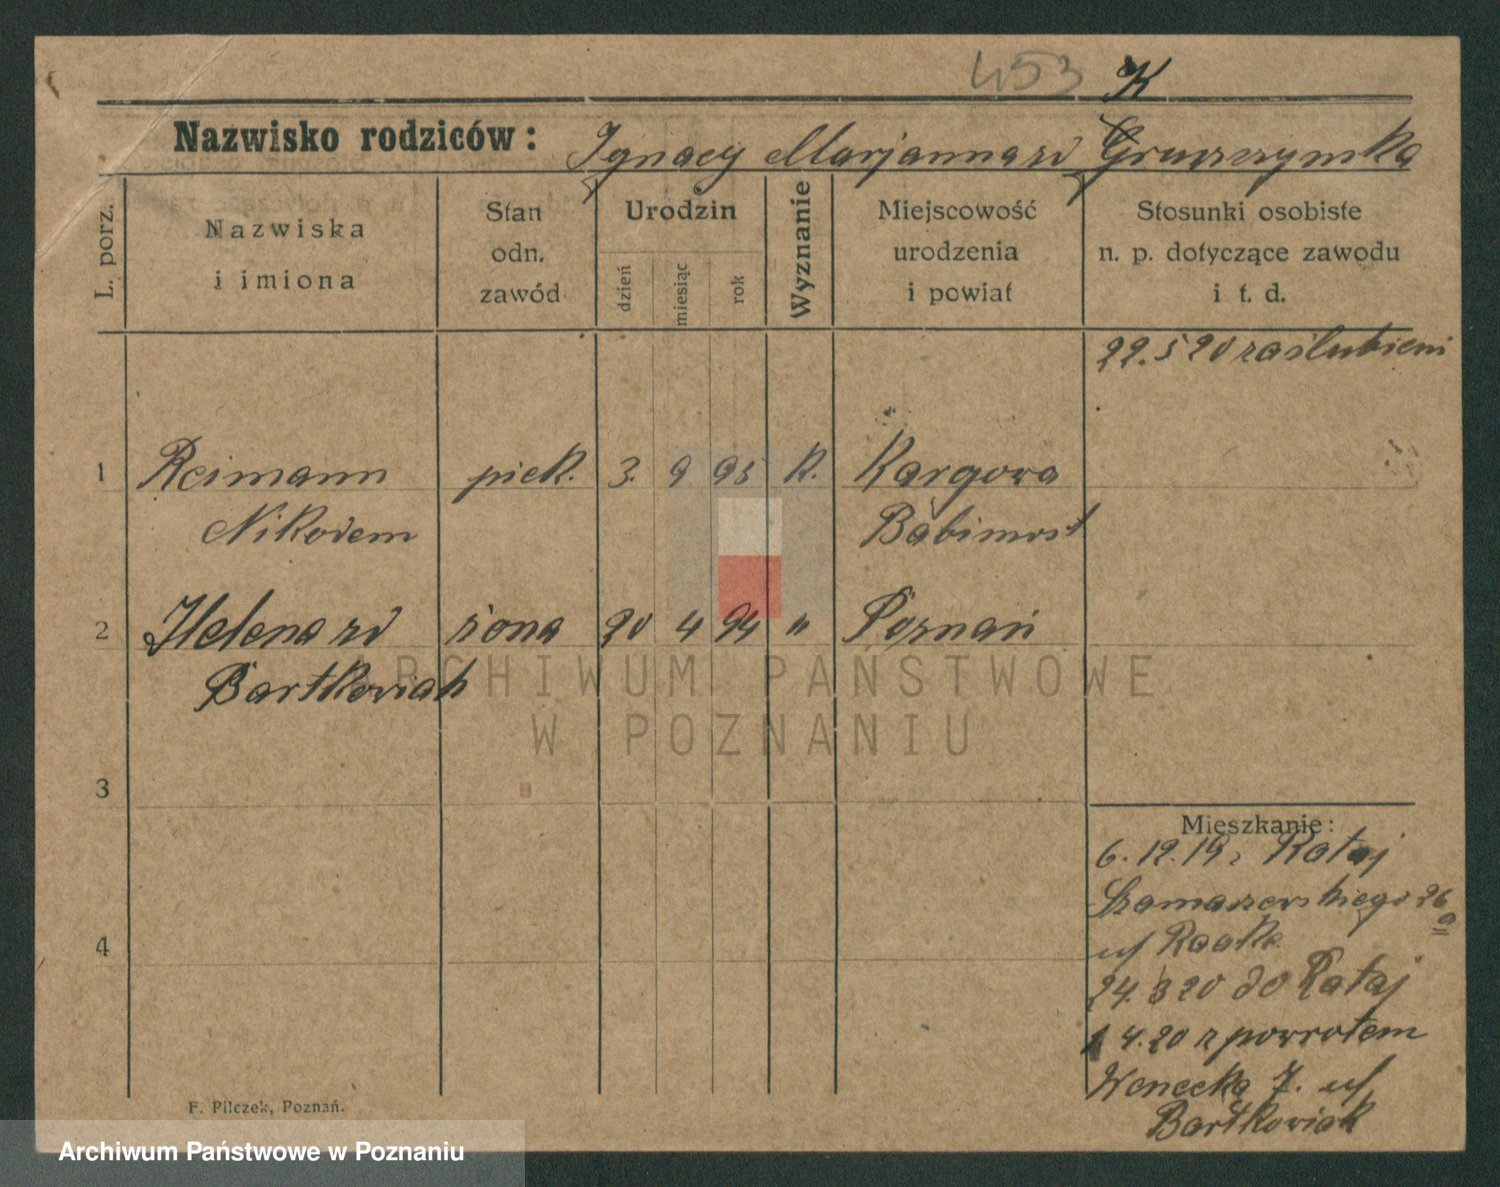 453 K
Nazwisko rodziców: Ignacy Marjanna zd Gruszczynska
L. porz.
Nazwiska
i imiona
Stan
odn.
zawód
Urodzin
dzień
miesiąc
rok
Wyznanie
Miejscowość
urodzenia
i powiat
Stosunki osobiste
n. p. dotyczące zawodu
i t. d.
22.5 20 zaślubieni
1 Reimann piek. 3. 9 95 k. Kargowa
Nikodem Babimost
2 Helena zd żona 20 4 94 " Poznań
Bartkowiak
ARCHIWUM PAŃSTWOWE
W POZNANIU
3
Mieszkanie:
6.12.19 z Rataj
Szamarzewskiego 26
a
u/
4
24.3 20 do Rataj
1 4.20 z powrotem
Wenecka 7. u/
Bartkowiak
F. Pilczek, Poznań.
Archiwum Państwowe w Poznaniu